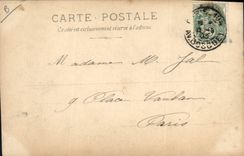 6
CARTE POSTALE
Ce côté est exclusivement réservé à l'adresse
Madame M.
9 Place Vauban
Paris